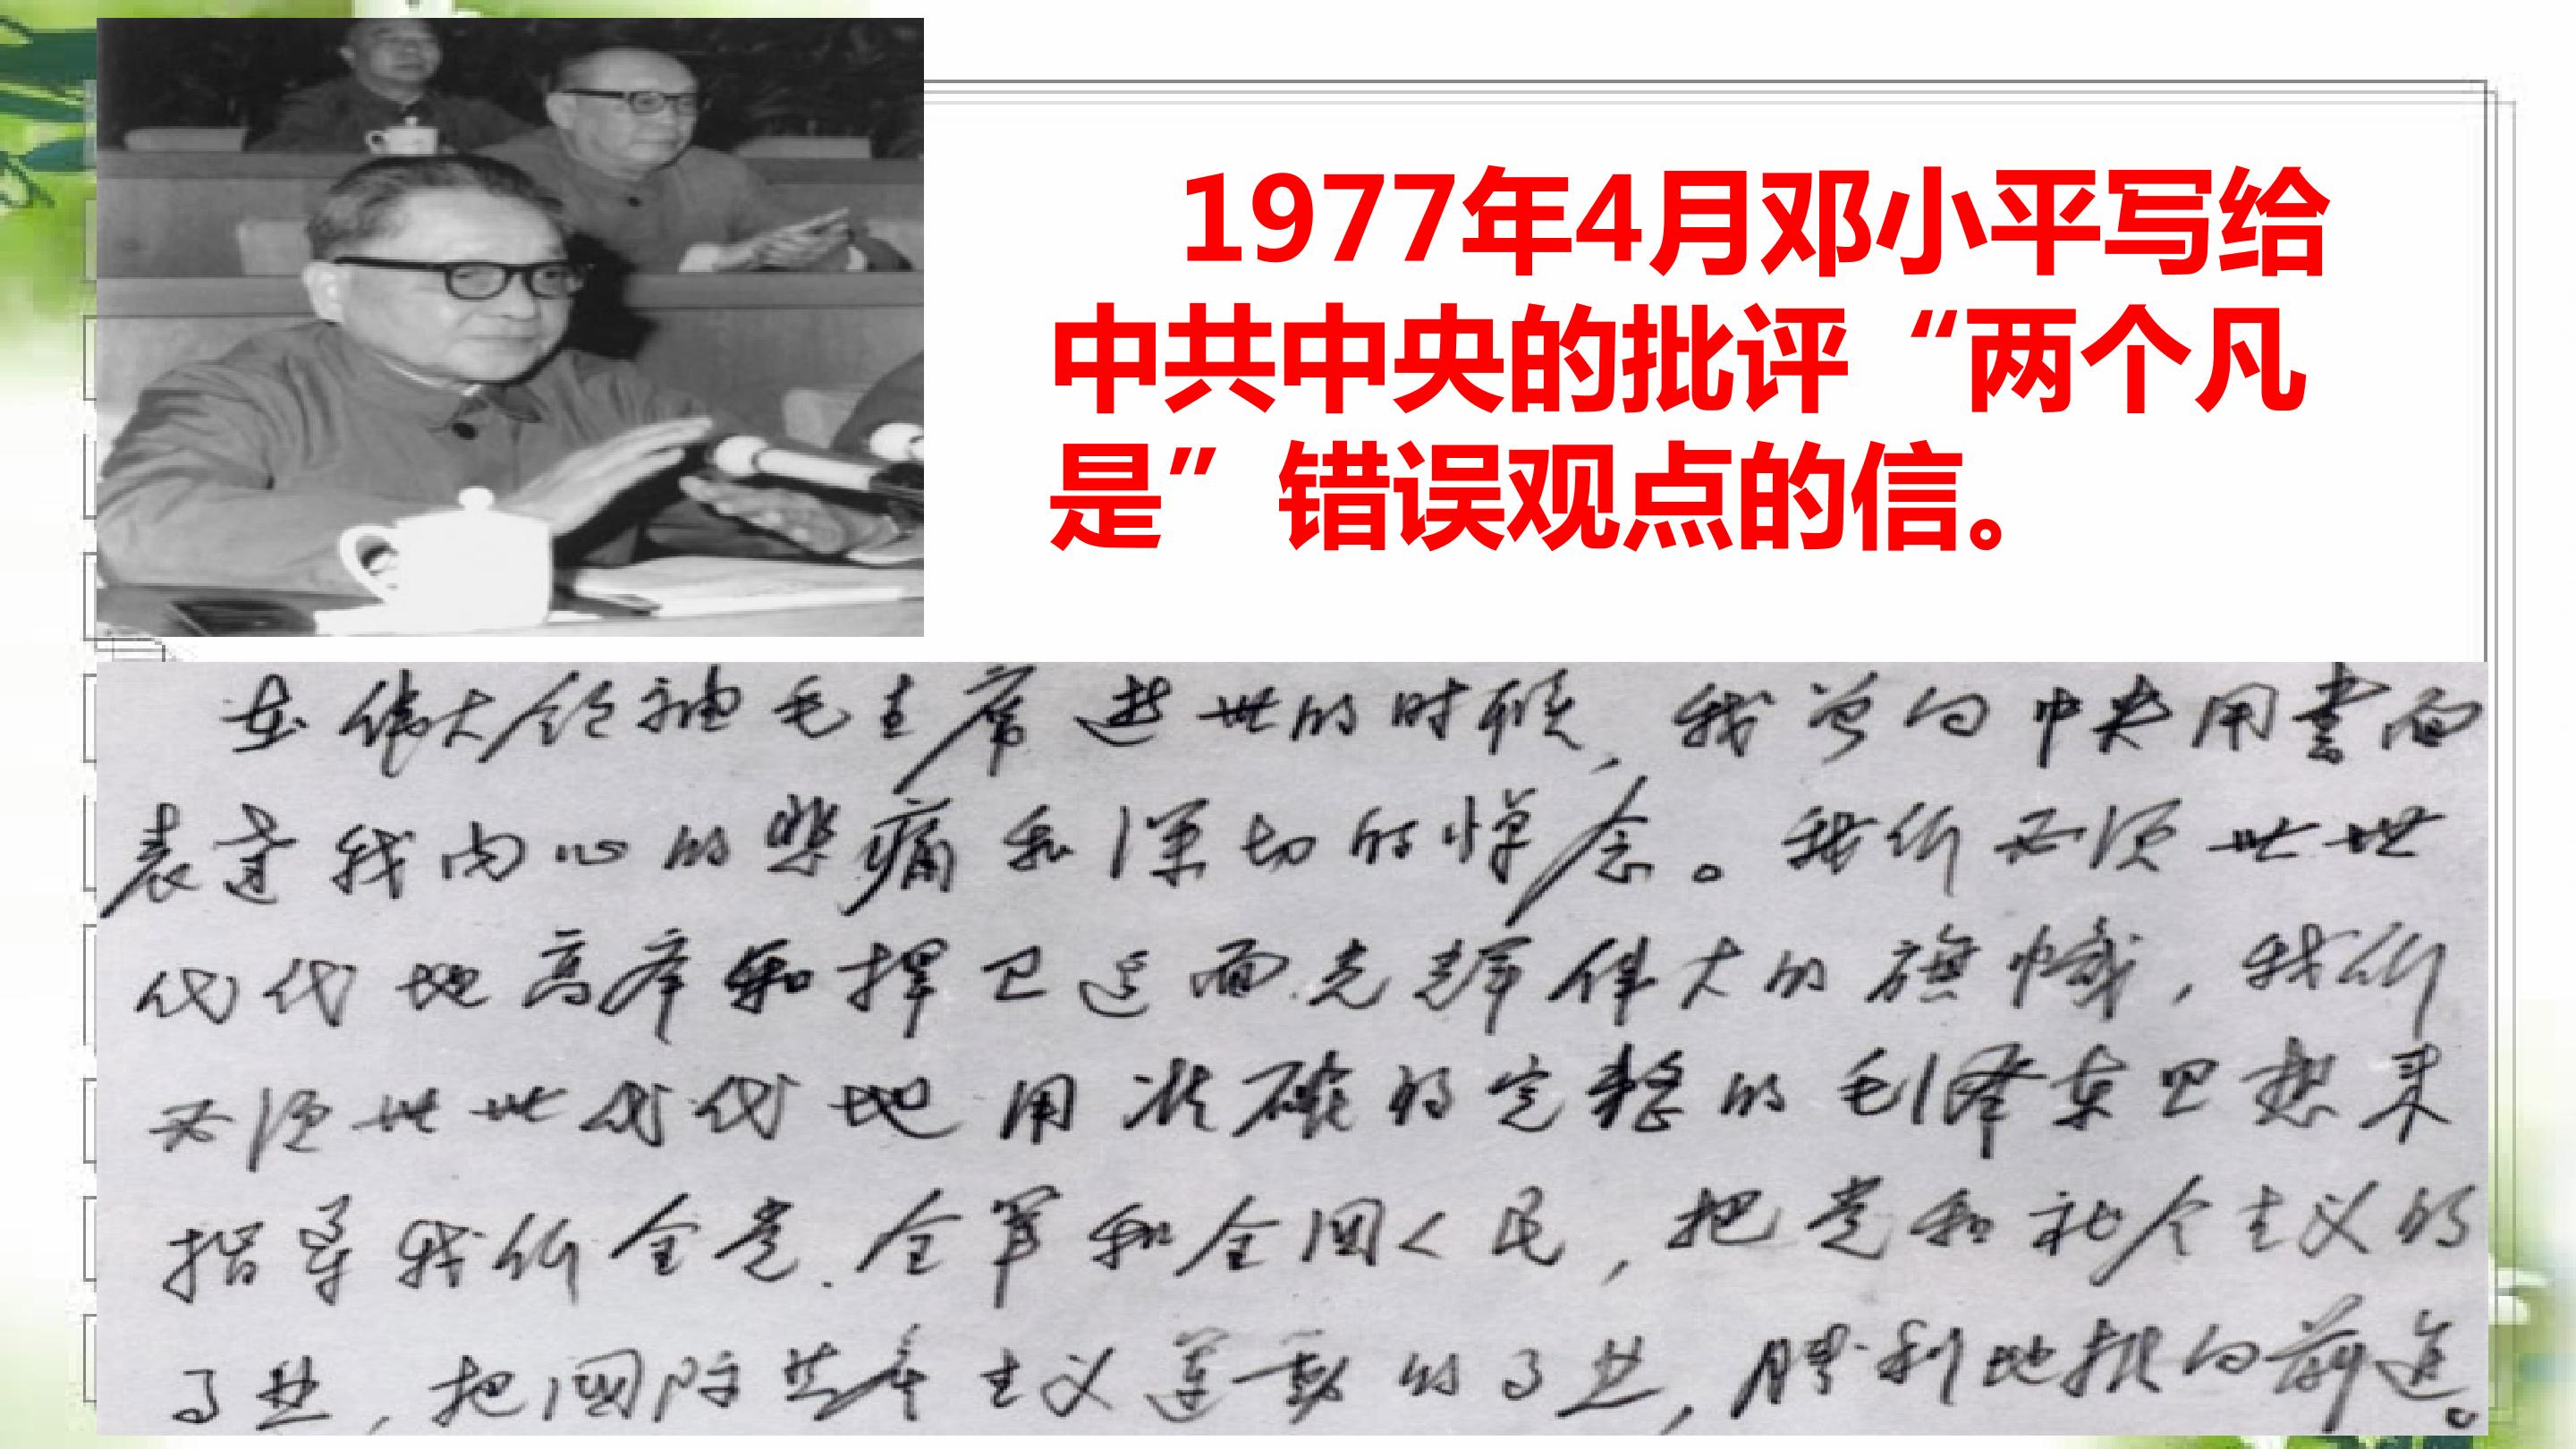 1977年4月邓小平写给
中共中央的批评“两个凡
是”错误观点的信。
在伟大领袖毛主席逝世的时候，我曾向中央用書面
表达我内心的悲痛和深切的悼念。我们必须世世
代代地高举和捍卫这面光辉伟大的旗帜，我们
必须世世代代地用准确的完整的毛泽东思想来
指导我们全党、全军和全国人民，把党和社会主义的
事业，把国际共产主义运动的事业，胜利地推向前进。